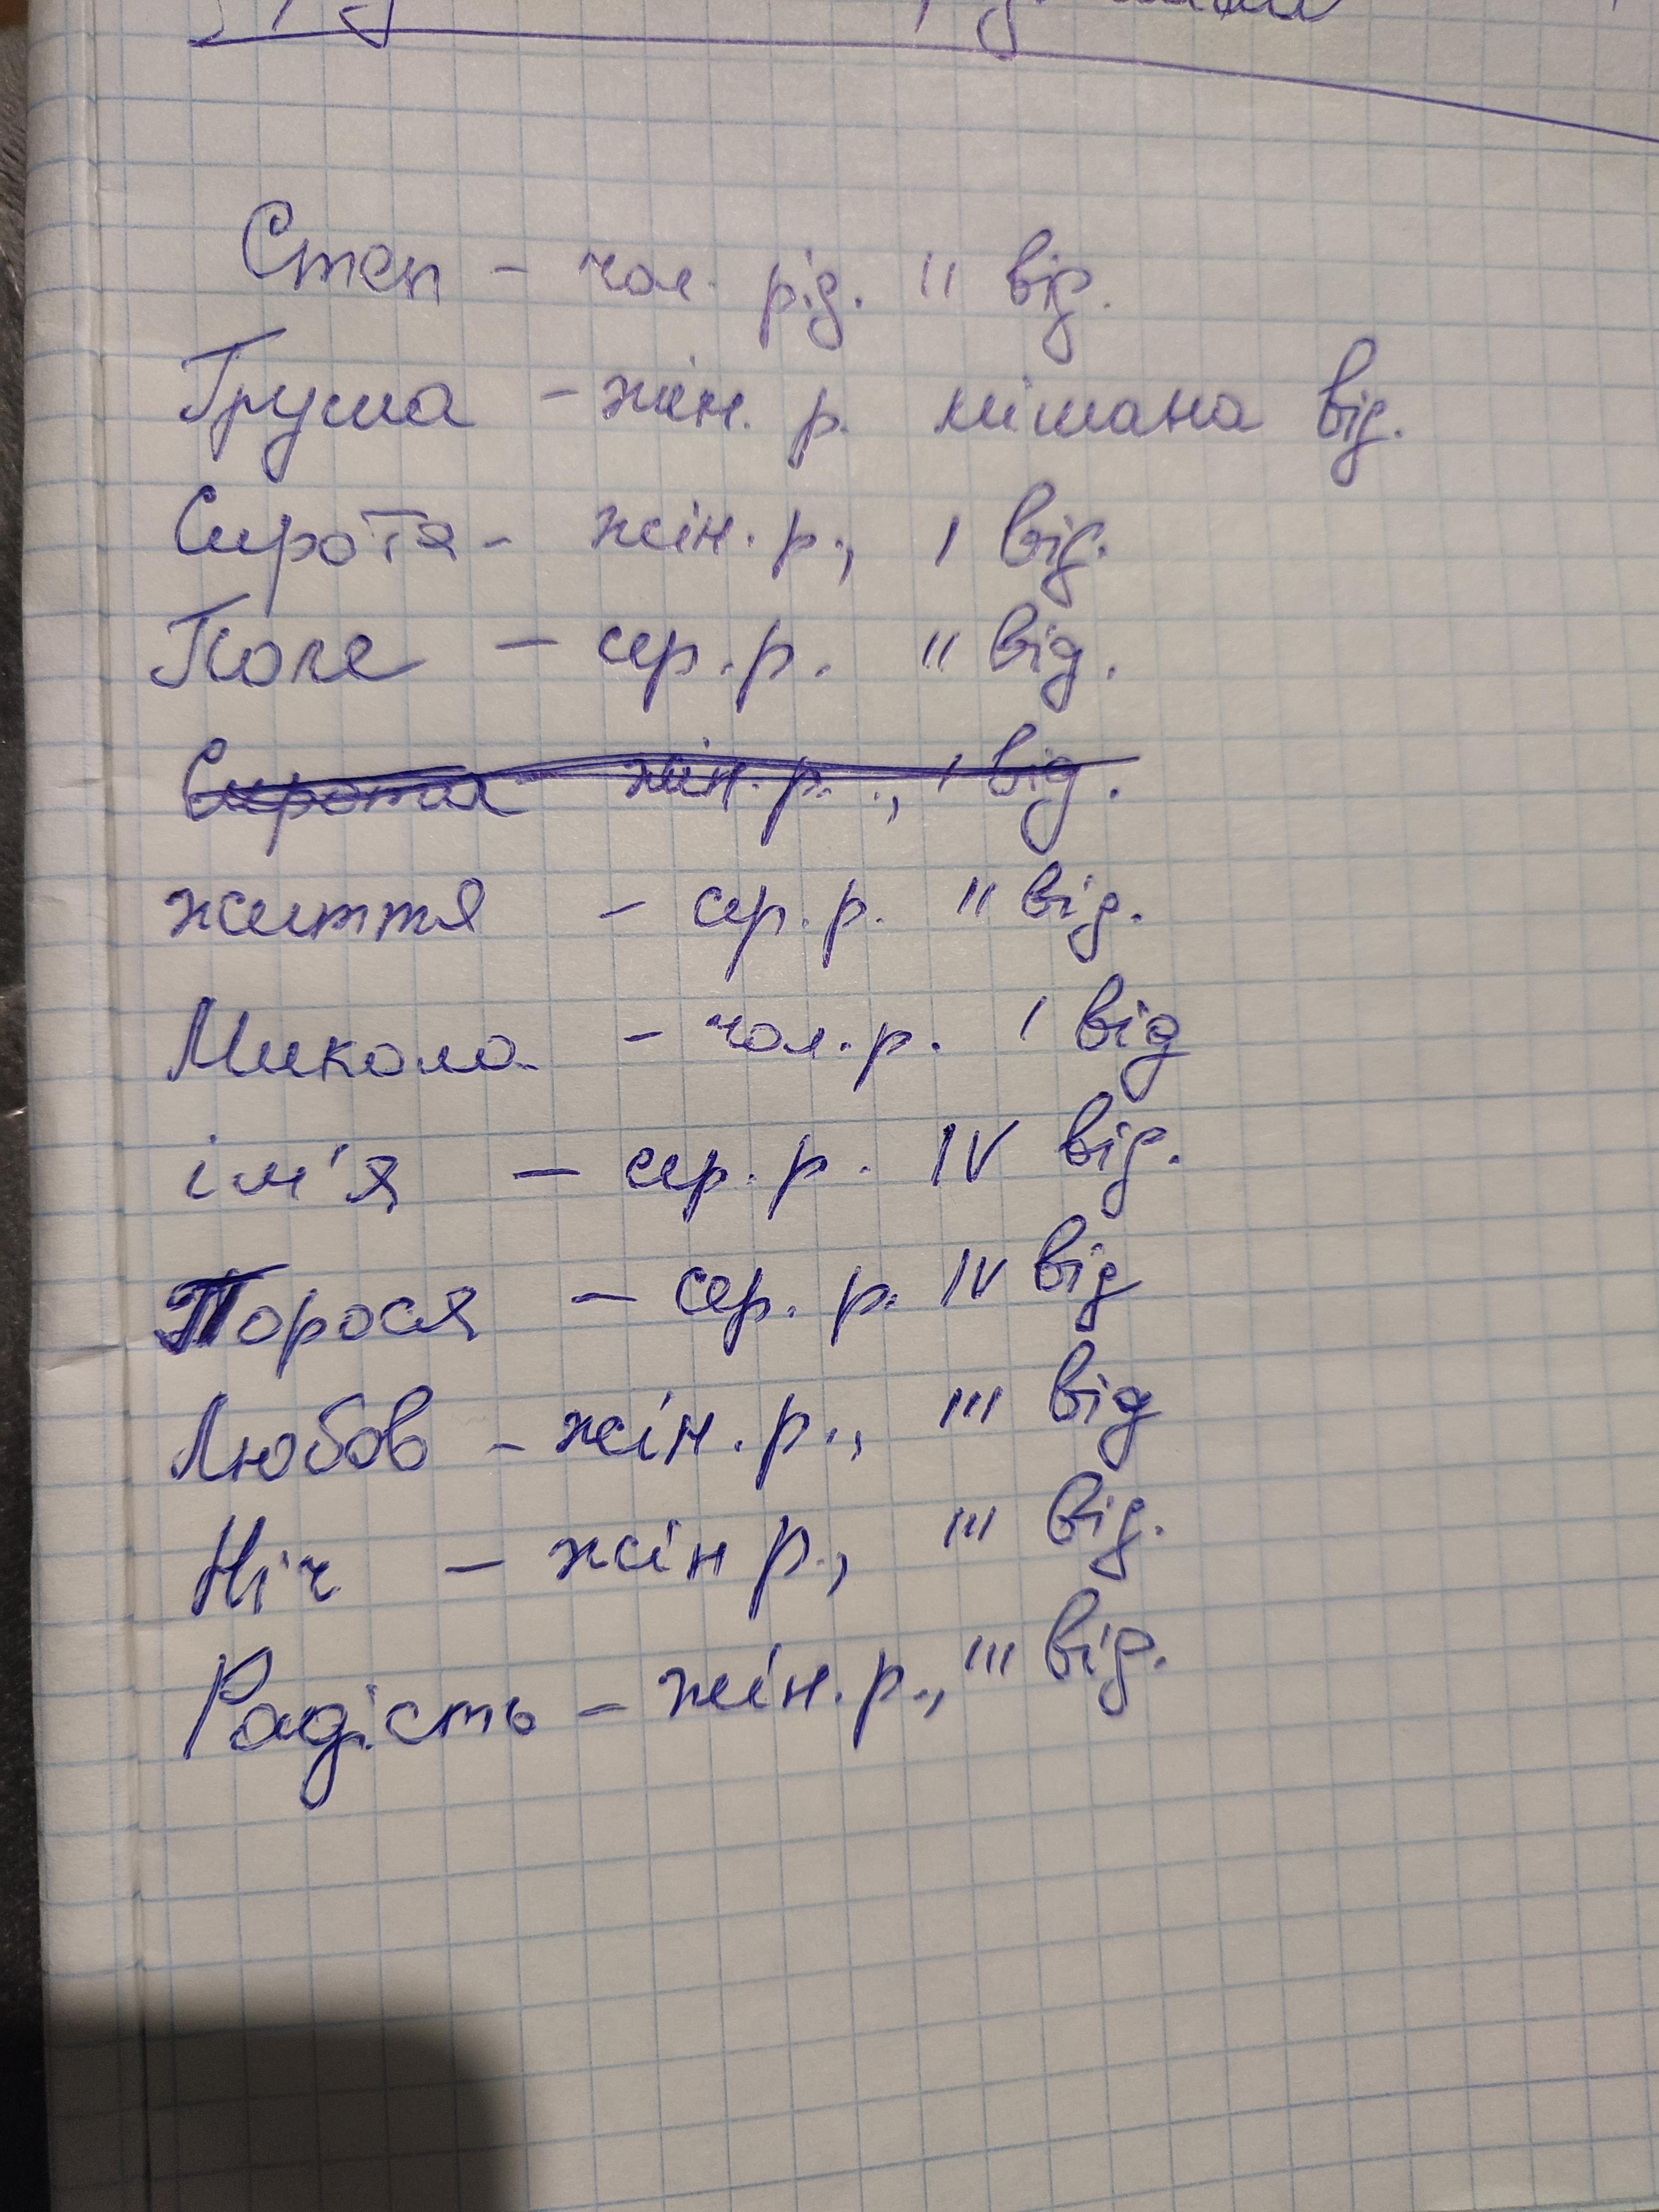 Степ - чол. рід. II від.
Груша - жін. р. мішана від.
Сирота - жін. р., I від.
Поле - сер. р. II від.
Сирота - жін. р., I від.
життя - сер. р. II від.
Микола - чол. р. I від
ім'я - сер. р. IV від.
Порося - сер. р. IV від
Любов - жін. р., III від
Ніч - жін р., III від.
Радість - жін. р., III від.